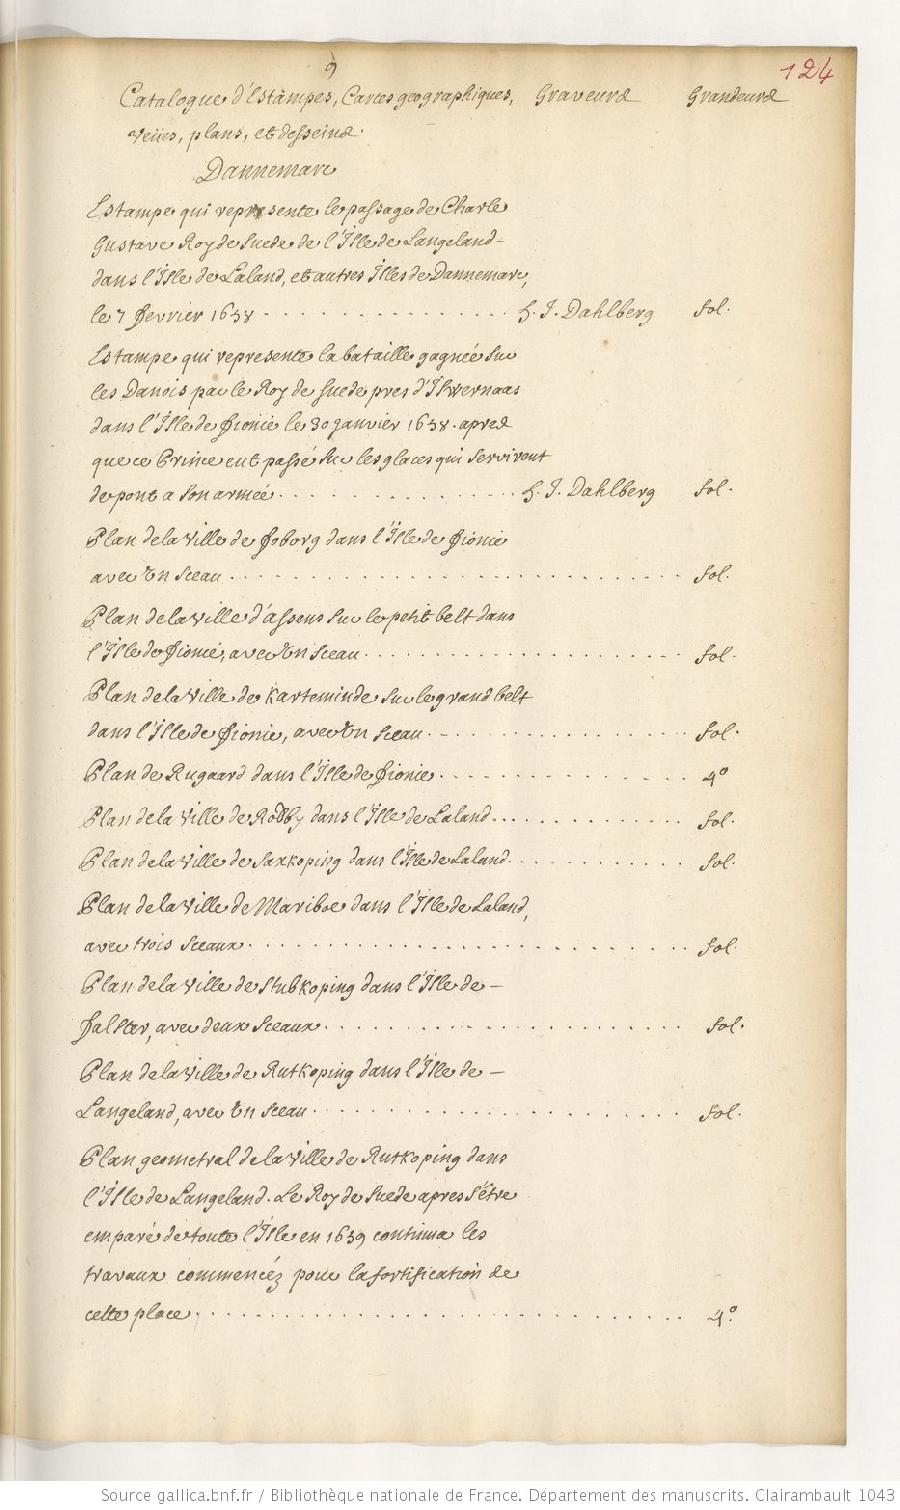 9
124
Catalogue d'Estampes, Cartes geographiques, Graveurs Grandeurs
veües, plans, et desseins.
Dannemarc
Estampe qui represente le passage de Charle
Gustave Roy de Suede de l'Isle de Langeland-
dans l'Isle de Laland, et autres Isles de Dannemarc,
le 7 fevrier 1658 . . . . . . . . . . . . . . . E. J. Dahlberg fol.
Estampe qui represente la bataille gagnée sur
les Danois par le Roy de Suede pres d'Iwernaas
dans l'Isle de fionie le 30 janvier 1658. apres
que ce Prince eut passé sur les glaces qui servirent
de pont a son armée . . . . . . . . . . . . . . E. J. Dahlberg fol.
Plan de la ville de foborg dans l'Isle de fionie
avec un sceau . . . . . . . . . . . . . . . . . . . . fol.
Plan de la ville d'assens sur le petit belt dans
l'Isle de fionie, avec un sceau . . . . . . . . . . . . . . . fol.
Plan de la ville de Karteminde sur le grand belt
dans l'Isle de fionie, avec un sceau . . . . . . . . . . . . . fol.
Plan de Rugaard dans l'Isle de fionie . . . . . . . . . . . . 4°
Plan de la ville de Rodby dans l'Isle de Laland . . . . . . . . . . fol.
Plan de la ville de Saxkoping dans l'Isle de Laland . . . . . . . . . fol.
Plan de la ville de Mariboe dans l'Isle de Laland,
avec trois sceaux . . . . . . . . . . . . . . . . . . . fol.
Plan de la ville de Stubkoping dans l'Isle de-
falster, avec deux sceaux . . . . . . . . . . . . . . . . fol.
Plan de la ville de Rutkoping dans l'Isle de-
Langeland, avec un sceau . . . . . . . . . . . . . . . . fol.
Plan geometral de la ville de Rutkoping dans
l'Isle de Langeland. Le Roy de Suede apres s'être
emparé de toute l'Isle en 1659 continua les
travaux commencéz pour la fortification de
cette place . . . . . . . . . . . . . . . . . . . . . 4°.
Source gallica.bnf.fr / Bibliothèque nationale de France. Département des manuscrits. Clairambault 1043